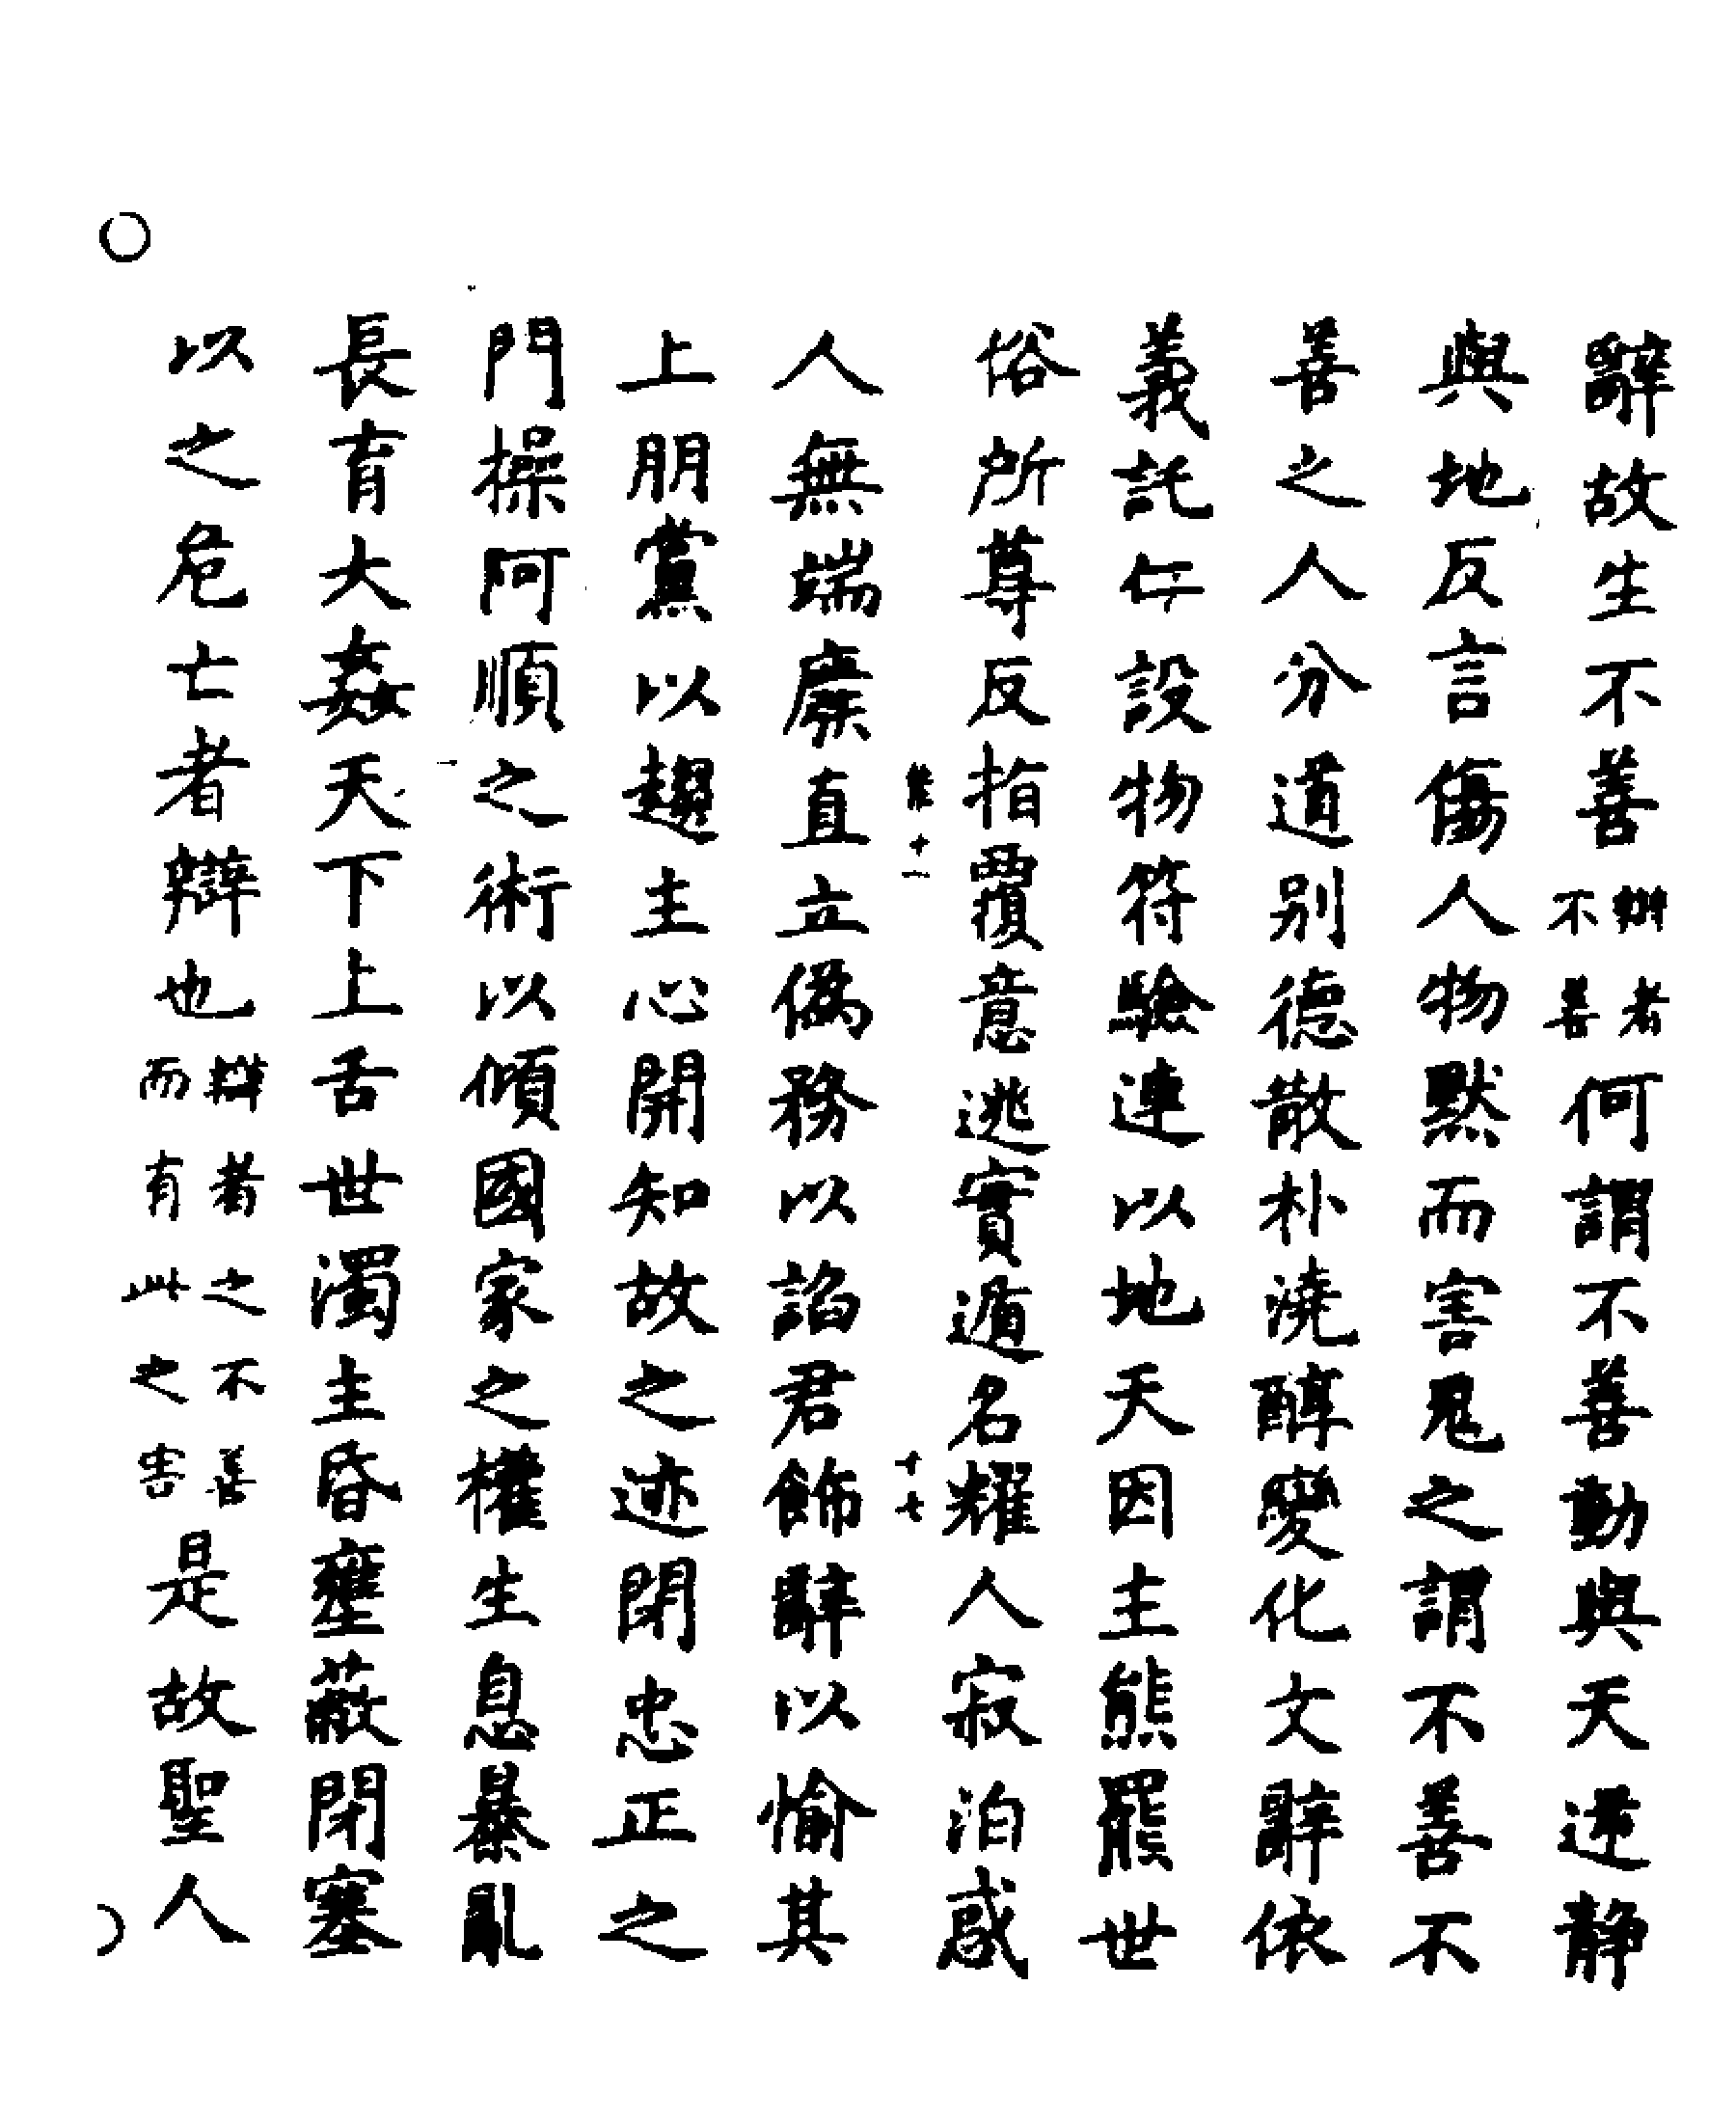 辭故生不善辯者不善何謂不善動與天逆静
與地反言傷人物默而害鬼之謂不善不
善之人分道别德散朴澆醇變化文辭依
義託仁設物符驗連以地天因主熊羆世
俗所尊反指覆意逃實遁名耀人寂泊惑
能十一 十七
人無端廢直立僞務以諂君飾辭以愉其
上朋黨以趨主心開知故之迹閉忠正之
門操阿順之術以傾國家之權生息暴亂
長育大姦天下上舌世濁主昏壅蔽閉塞
以之危亡者辯也辯者之不善而有此之害是故聖人